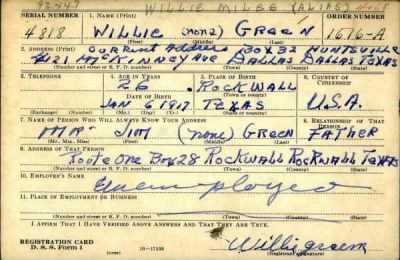 WILLIE MILES (ALIAS)
SERIAL NUMBER 1. NAME (Print) ORDER NUMBER
4818 WILLIE (none) GREEN 1676-A
(First) (Middle) (Last)
2. ADDRESS (Print) Current Address Box 32 HUNTSVILLE
MCKINNEY AVE DALLAS DALLAS TEXAS
(Number and street or R. F. D. number) (Town) (County) (State)
3. TELEPHONE 4. AGE IN YEARS 5. PLACE OF BIRTH 6. COUNTRY OF CITIZENSHIP
26 ROCKWALL
DATE OF BIRTH (Town or county)
JAN 6 1917 TEXAS U.S.A.
(Exchange) (Number) (Mo.) (Day) (Yr.) (State or country)
7. NAME OF PERSON WHO WILL ALWAYS KNOW YOUR ADDRESS 8. RELATIONSHIP OF THAT PERSON
MR JIM (none) GREEN FATHER
(Mr., Mrs., Miss) (First) (Middle) (Last)
9. ADDRESS OF THAT PERSON
Route One Box 28 ROCKWALL ROCKWALL TEXAS
(Number and street or R. F. D. number) (Town) (County) (State)
10. EMPLOYER'S NAME
Unemployed
11. PLACE OF EMPLOYMENT OR BUSINESS
(Number and street or R. F. D. number) (Town) (County) (State)
I AFFIRM THAT I HAVE VERIFIED ABOVE ANSWERS AND THAT THEY ARE TRUE.
REGISTRATION CARD
D. S. S. Form 1 16-17105 Willi green
(Registrant's signature)